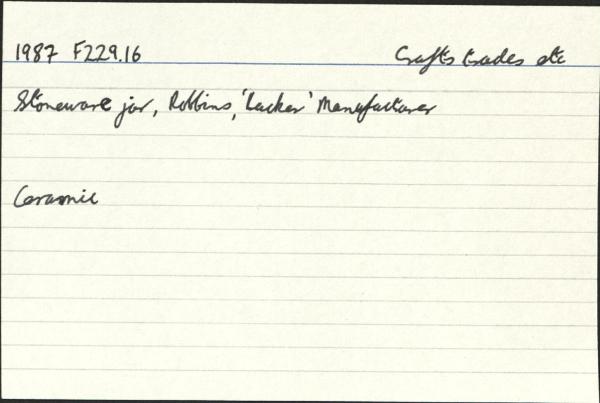 1987 F229.16 Crafts trades etc
Stoneware jar, Robbins, 'Lacker' Manufacturer
Ceramic